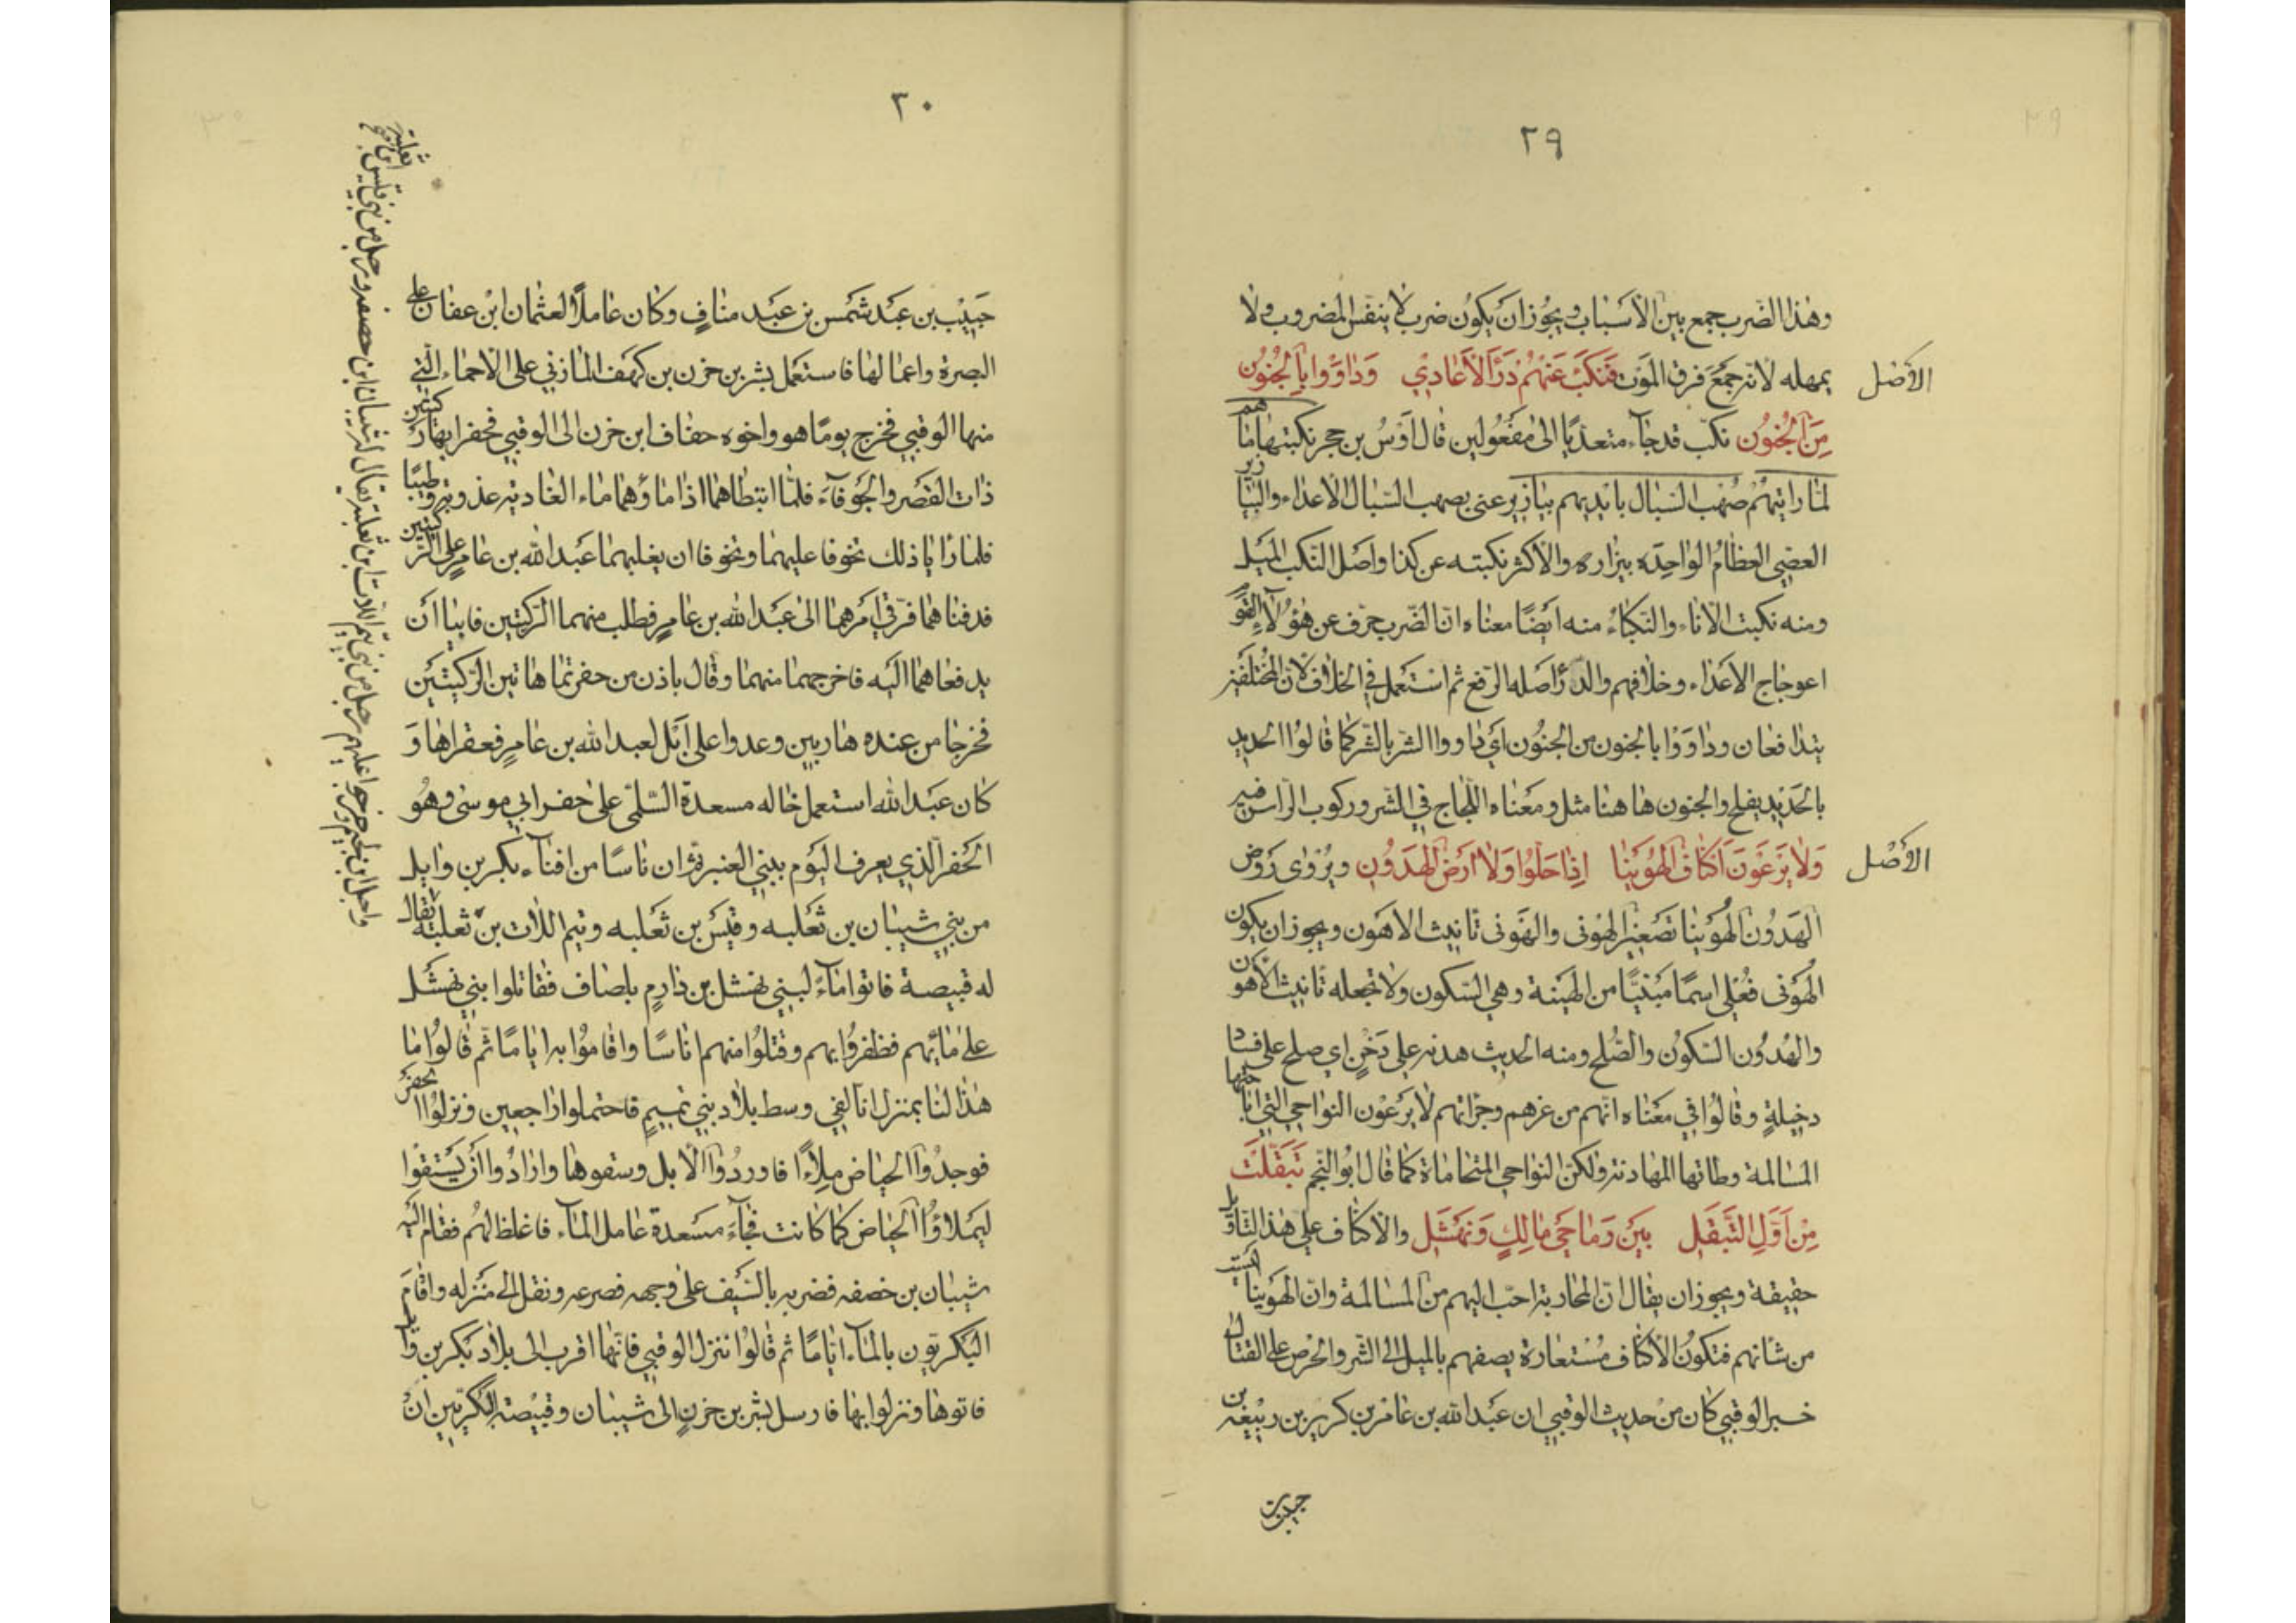 ٢٩
وهذا الضرب جمع بين الأسباب ويجوز ان يكون ضرب لا ينفس المضروب ولا
الأصْل
يمهله لانه جمع فرق الموت فَنَكَّبَ عَنْهُمْ دَرْأَ الأَعَادِيْ وَدَاوَوْا بِالجُنُوْنِ
مِنَ الجُنُوْن نكّب قد جآء متعدّيًا الى مفعولين قال اَوْسُ بن حجر نكبتها ماءهم
لمّا رايتهُمْ صُهْب السّبال بايديهم بيازير عنى بصهب السّبال الاعداء والبيازير
العصي العظامُ الواحِدَه بيزاره والأكثر نكبته عن كذا واصل النكب الميل
ومنه نكبت الاناء والنكباءُ منه ايضًا معناه انّ الضّرب حرّف عن هؤلاءِ القوم
اعوجاج الأعداء وخلافهم والدّرأ اصله الدّفع ثم استعمل في الخلاف لان المختلفين
يتدافعان وداوَوْا بالجنون من الجنُون أي داووا الشّر بالشّر كما قالوُا الحديد
بالحَدِيْد يفلح والجنون ها هنا مثل ومعْناه اللّجاج في الشّر وركوب الرأس فيه
الأصْل
وَلاَ يَرْعَوْنَ اَكْنَافَ الهُوَيْنَا اِذَا حَلُوْا وَلاَ ارَضَ الهُدُوْنِ ويُرْوى رَوْض
الهُدُوْن الهُوَيْنا تصْغِيْر الهُوْنى والهُوْنى تانيث الاهون ويجوز ان يكون
الهُوْنى فُعْلى اسمًا مبْنيًّا من الهينة وهي السّكون ولا تجعله تانيث الأهون
والهُدُوْن السّكوْن والصُّلح ومنه الحديث هدنه على دَخَنٍ اي صلح على فساد
دخيلةٍ وقالوُا في معْناه انّهم من عزهم وجرأتهم لا يَرعَوْن النواحي التي اباحتها
المسالمة وطاتها المهادنه ولكن النواحي المتحاماة كما قال ابُوالنجم تَبَقَّلَتْ
مِنْ اَوَّلِ التَّبَقُّلِ بَيْنَ رِمَاحَيْ مَالِكٍ وَنَهْشَلِ والاكناف على هذا التاويل
حقيقة ويجوز ان يقال انّ المحاربة احبّ اليهم من المسالمة وانّ الهُوَيْنا ليست
من شانهم فتكوْنُ الأكناف مُسْتعارة يصفهم بالميل الى الشّر والحرص على القتال
خبر الوقبي كان من حديث الوقبي ان عبدالله بن عامر بن كريز بن ربيْعه بن
حبيب بن
٣٠
حَبِيْب بن عبْد شَمْس بن عبْد منافٍ وكان عاملاً لعثمان ابن عفان على
البصرة واعمالها فاستعمل بشر بن حزن بن كهف المازني على الاحماء الّتي
منها الوقبي فخرج يومًا هو واخوه حفاف ابن حزن الى الوقبي فحفرا بها ركيتين
ذات القصر والجوفآءَ فلمّا انبطاهما اذا ماؤهما ماء الغادية عذوبة وطيبًا
فلمّا رأيا ذلك تخوفا عليهما وتخوفا ان يغلبهما عبدالله بن عامر على الركيتين
فدفناهما فرقي امرهما الى عبدالله بن عامرٍ فطلب منهما الركيتين فابيا اَنْ
يدفعاهما اليْه فاخرجهما منهما وقال باذن من حفرتما هاتين الرّكيتيْن
فخرجا من عنده هاربين وعدوا على اَبْل لعبدالله بن عامرٍ فعقراها وَ
كان عبْدالله استعمل خاله مسعدة السّلمي على حفر ابي موسى وهُو
الحفر الّذي يعرف اليَوْم ببني العنبر ثمّ ان ناسًا من افنآء بكر بن وايل
من بني شيْبان بن ثعْلبه وقيْس بن ثعْلبه وتيم اللات بن ثعلبة يقال
له قبيصة فاتوا مآءً لبني نهشل بن دارمٍ بلصاف فقاتلوا بني نهشل
على مآئهم فظفروُا بهم وقتلوُا منهم اناسًا واقاموُا به ايامًا ثم قالوُا ما
هذا لنا بمنزل انا لفي وسط بلاد بني تميمٍ فاحتملوا راجعين ونزلوا الحفر
فوجدُوآ الحياض مِلاءًا فاوردُوا الابل وسقوها وارادُوا اَنْ يَسْتقوْا
ليمْلاؤُا الحياض كما كانت فجآءَ مسعدة عامل المآء فاغلظ لهُم فقام اليْه
شيبان بن خصفه فضربه بالسّيْف على وجهه فصرعه ونقل الى منْزله واقامَ
البكريّون بالمآء ايامًا ثم قالوُا ننزل الوقبي فانّها اقرب الى بلاد بكر بن وايل
فاتوها ونزلوا بها فارسل بشر بن حزنٍ الى شيبان وقبيْصة البكريّين انْ